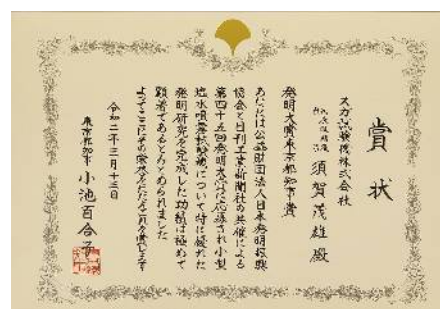 賞状
スガ試験機株式会社
代表取締役
社長
須賀茂雄殿
発明大賞東京都知事賞
あなたは公益財団法人日本発明振興
協会と日刊工業新聞社の共催による
第四十五回発明大賞に応募され小型
塩水噴霧試験機について特に優れた
発明研究を完成した功績は極めて
顕著であるとみとめられました
よってここにその栄誉をたたえこれを賞します
令和二年三月十三日
東京都知事 小池百合子